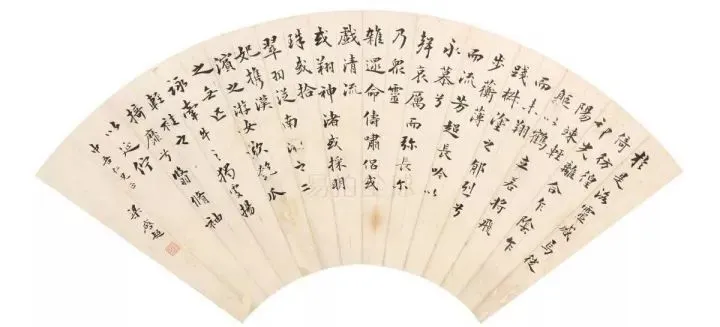 於是洛靈感焉徙
倚彷徨
神光離合乍陰乍
陽竦輕
軀以鶴立若將飛
而未翔
踐椒塗之郁烈兮
步蘅薄
而流芳超長吟以
永慕兮
聲哀厲而彌長爾
乃眾靈
雜遝命儔嘯侶或
戲清流
或翔神渚或採明
珠或拾
翠羽從南湘之二
妃攜漢
濱之游女歎匏瓜
之無匹
詠牽牛之獨處揚
輕袿之猗靡兮翳脩袖
以延佇
仁兄 梁啟超